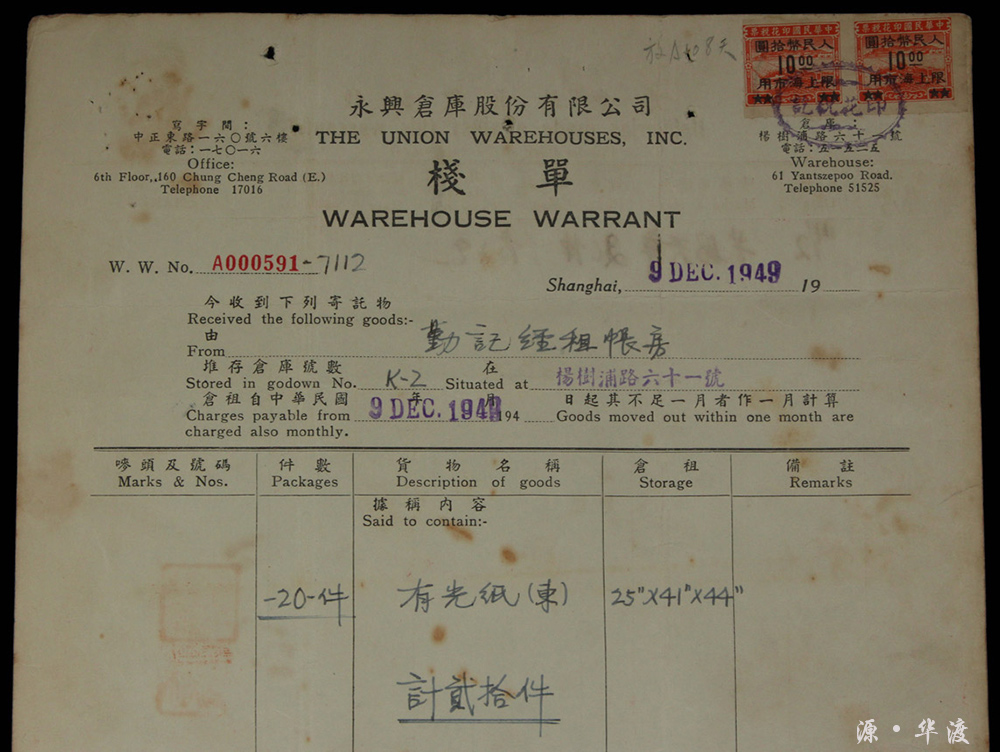 中華民國印花稅票
人民幣拾圓
10.00
限上海市用
中華民國印花稅票
人民幣拾圓
10.00
限上海市用
永興倉庫股份有限公司
THE UNION WAREHOUSES, INC.
寫字間：
中正東路一六〇號六樓
電話：一七〇一六
Office:
6th Floor,,160 Chung Cheng Road (E.)
Telephone 17016
倉庫：
楊樹浦路六十一號
電話：五一五二五
Warehouse:
61 Yantszepoo Road.
Telephone 51525
棧單
WAREHOUSE WARRANT
W. W. No. A000591-7112
Shanghai, 9 DEC. 1949 19
今收到下列寄託物
Received the following goods:-
由
From 勤記經租帳房
堆存倉庫號數 在
Stored in godown No. K-2 Situated at 楊樹浦路六十一號
倉租自中華民國 年 月 日起其不足一月者作一月計算
Charges payable from 9 DEC. 1949 194 Goods moved out within one month are
charged also monthly.
嘜頭及號碼 件數 貨物名稱 倉租 備註
Marks & Nos. Packages Description of goods Storage Remarks
據稱內容
Said to contain:-
-20-件 有光紙(東) 25"X41"X44"
計貳拾件
源·华渡